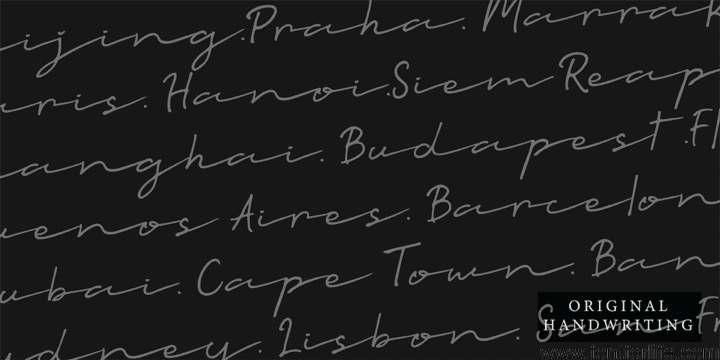 ijing. Praha. Marrak
aris. Hanoi. Siem Reap
anghai. Budapest. Fl
uenos Aires. Barcelon
ubai. Cape Town. Ban
dney. Lisbon. San Fr
ORIGINAL
HANDWRITING